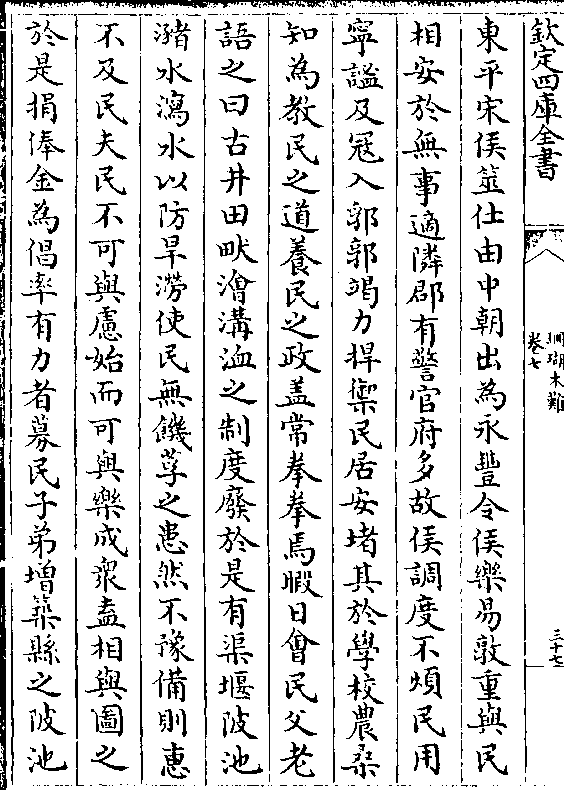 欽定四庫全書
珊瑚木難
卷七
三十七
東平宋侯筮仕由中朝出為永豐令侯樂易敦重與民
相安於無事適隣郡有警官府多故侯調度不煩民用
寧謐及冦入郛郭竭力捍禦民居安堵其於學校農桑
知為教民之道養民之政盖常拳拳焉暇日會民父老
語之曰古井田畎澮溝洫之制度廢於是有渠堰陂池
瀦水瀉水以防旱澇使民無饑莩之患然不豫備則惠
不及民夫民不可與慮始而可與樂成衆盍相與圖之
於是捐俸金為倡率有力者募民子弟増築縣之陂池